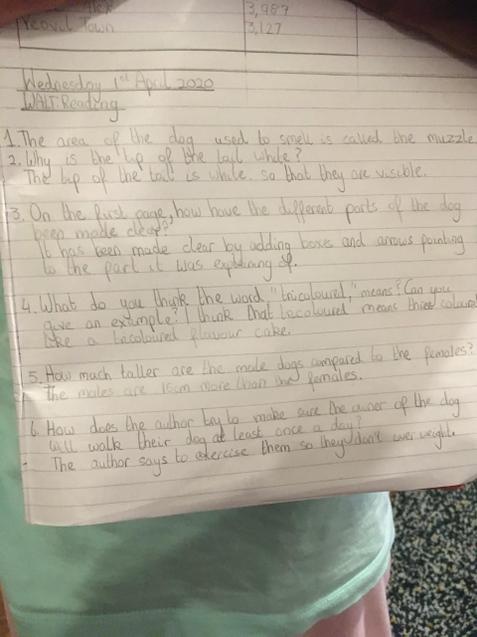 3,987
Yeovil Town 3,127
Wednesday 1st April 2020
WALT: Reading
1. The area of the dog used to smell is called the muzzle
2. Why is the tip of the tail white?
The tip of the tail is white so that they are visible.
3. On the first page, how have the different parts of the dog
been made clear?
It has been made clear by adding boxes and arrows pointing
to the part it was explaining of.
4. What do you think the word "tricoloured," means? Can you
give an example? I think that tricoloured means three colours
like a tricoloured flavour cake.
5. How much taller are the male dogs compared to the females?
The males are 15cm more than the females.
6. How does the author try to make sure the owner of the dog
will walk their dog at least once a day?
The author says to exercise them so they don't over weight.